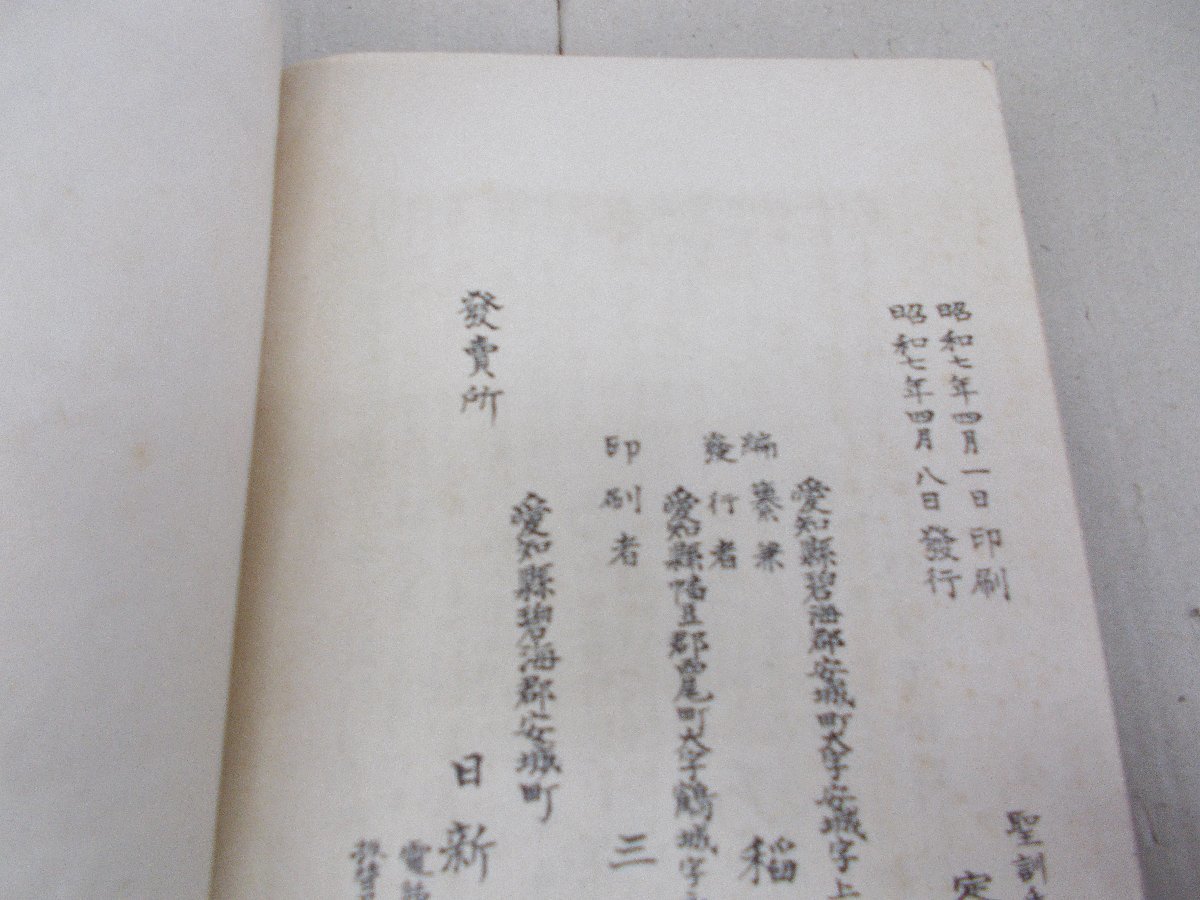 聖訓
定
昭和七年四月一日印刷
昭和七年四月八日發行
愛知縣碧海郡安城町大字安城字上
編纂兼
發行者
稻
愛知縣幡豆郡西尾町大字鶴城字
印刷者
三
愛知縣碧海郡安城町
發賣所
日新
電話
振替